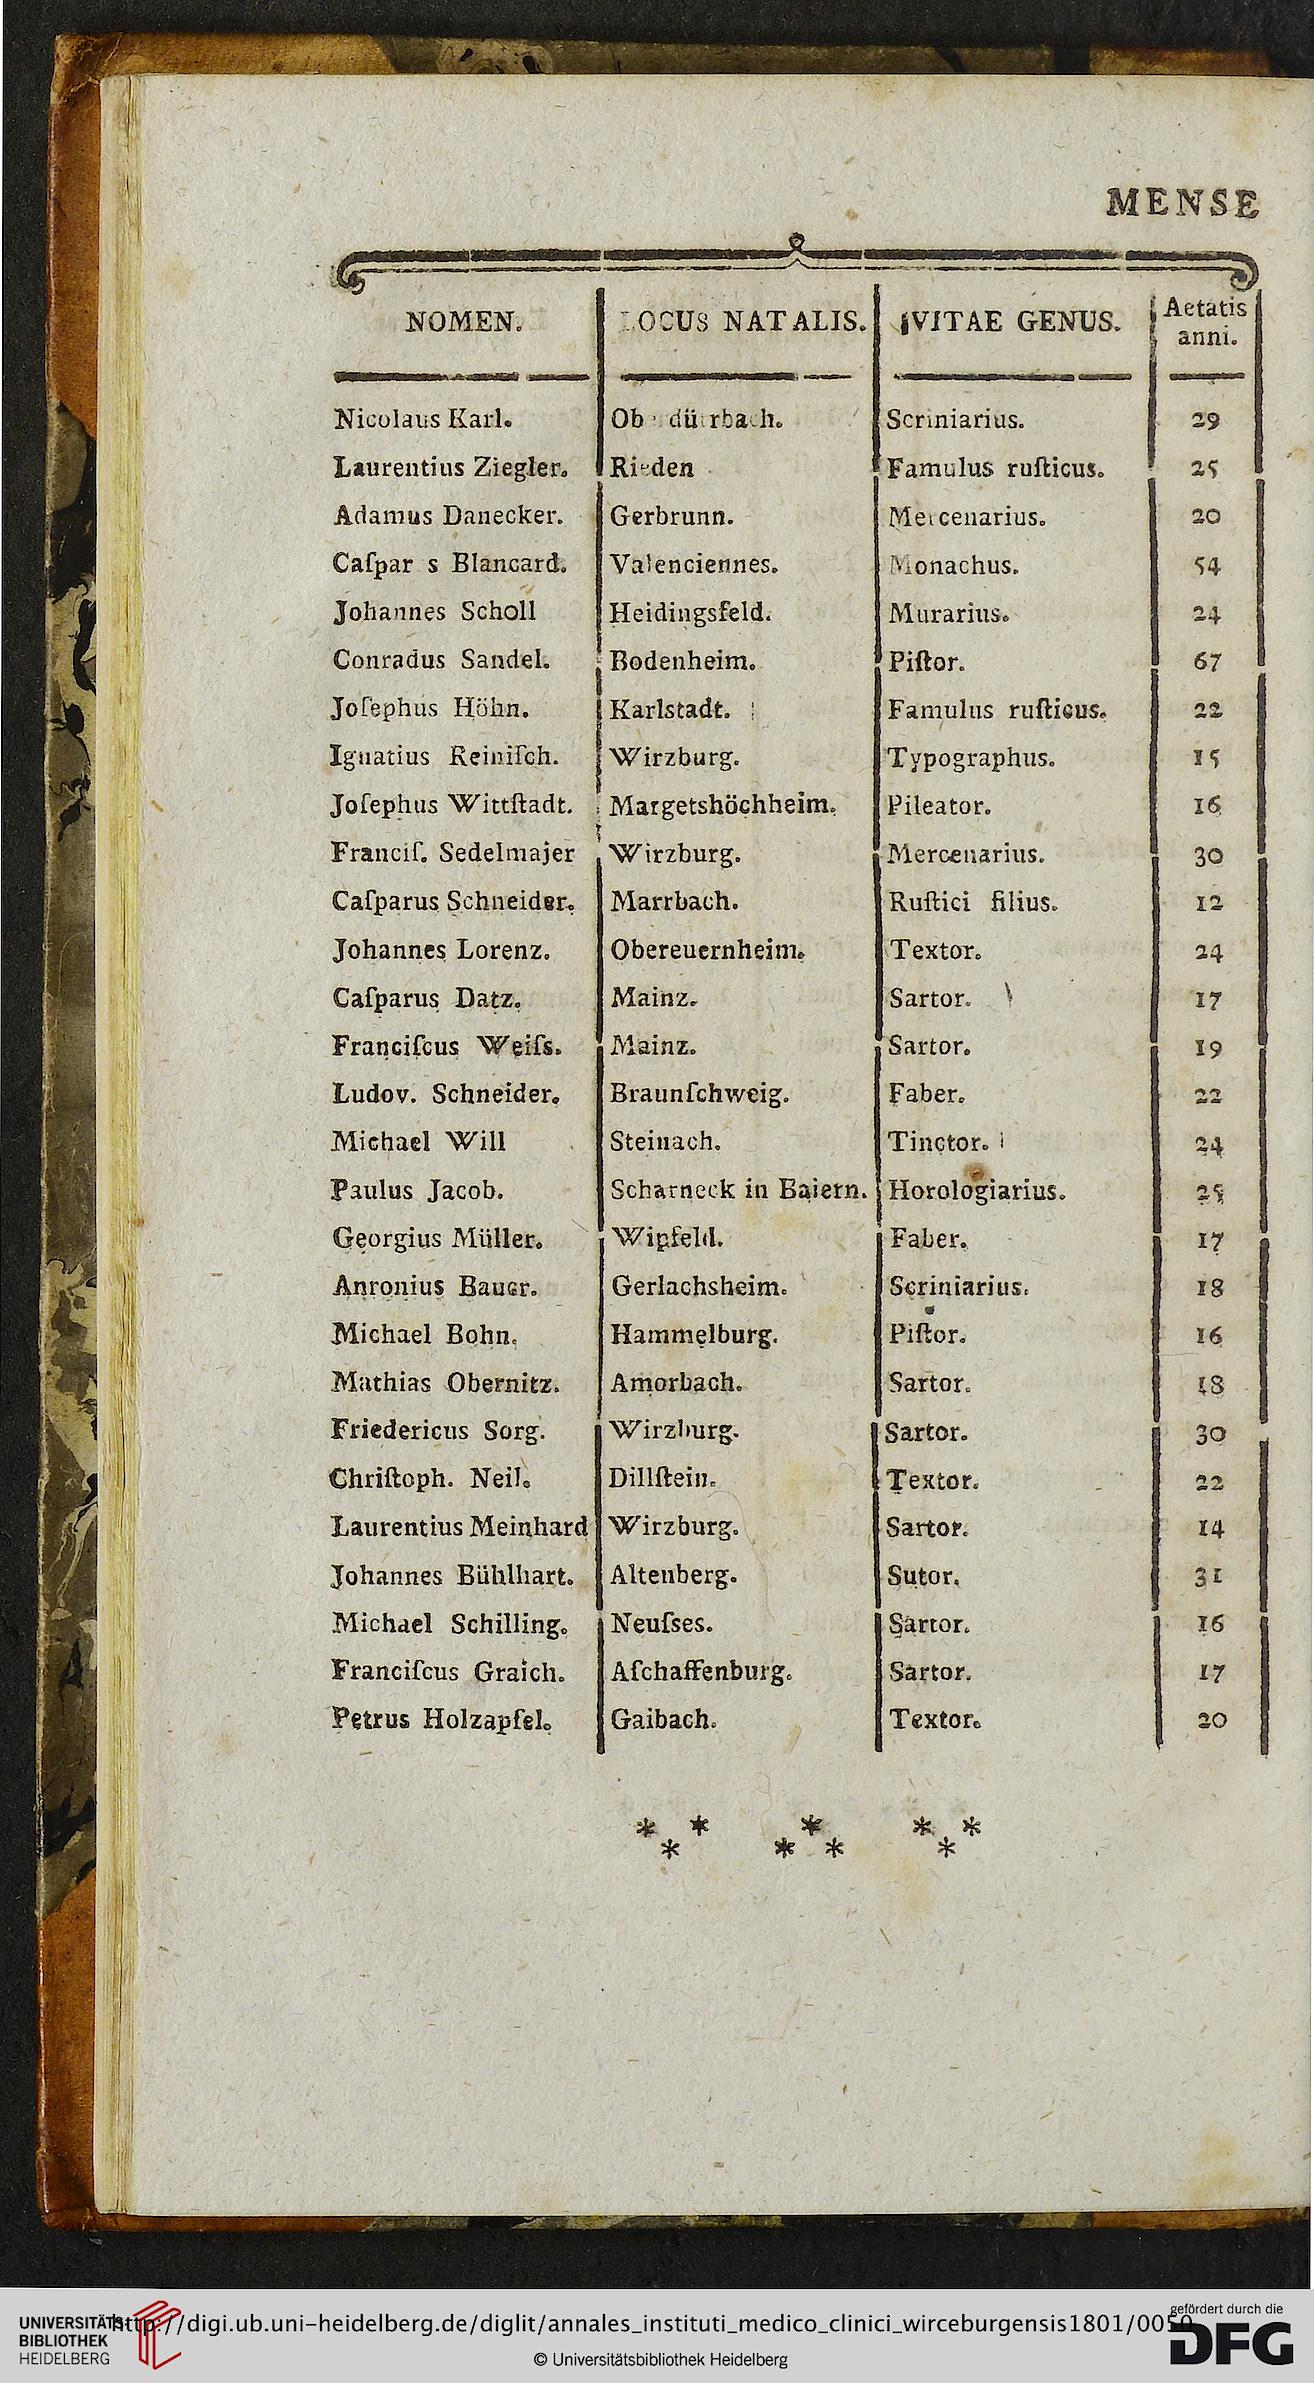 MENSE
NOMEN. LOCUS NATALIS. VITAE GENUS. Aetatis anni.
Nicolaus Karl. Scriniarius. 29
Laurentius Ziegler. Rieden Famulus ruſticus. 25
Adamus Danecker. Gerbrunn. Mercenarius. 20
Caſpar s Blancard. Valenciennes. Monachus. 54
Johannes Scholl Heidingsfeld. Murarius. 24
Conradus Sandel. Bodenheim. Piſtor. 67
Joſephus Höhn. Karlstadt. Famulus ruſticus. 22
Ignatius Reiniſch. Wirzburg. Typographus. 15
Joſephus Wittſtadt. Margetshöchheim. Pileator. 16
Franciſ. Sedelmajer Wirzburg. Mercenarius. 30
Caſparus Schneider. Marrbach. Ruſtici filius. 12
Johannes Lorenz. Obereuernheim. Textor. 24
Caſparus Datz. Mainz. Sartor. 17
Franciſcus Weiſs. Mainz. Sartor. 19
Ludov. Schneider. Braunſchweig. Faber. 22
Michael Will Steinach. Tinctor. 24
Paulus Jacob. Scharneck in Baiern. Horologiarius. 25
Georgius Müller. Wipfeld. Faber. 17
Anronius Bauer. Gerlachsheim. Scriniarius. 18
Michael Bohn. Hammelburg. Piſtor. 16
Mathias Obernitz. Amorbach. Sartor. 18
Friedericus Sorg. Wirzburg. Sartor. 30
Chriſtoph. Neil. Dillſtein. Textor. 22
Laurentius Meinhard Wirzburg. Sartor. 14
Johannes Bühlhart. Altenberg. Sutor. 31
Michael Schilling. Neuſses. Sartor. 16
Franciſcus Graich. Aſchaffenburg. Sartor. 17
Petrus Holzapfel. Gaibach. Textor. 20
* * * * * * * * *
UNIVERSITÄTS-
BIBLIOTHEK
HEIDELBERG
http://digi.ub.uni-heidelberg.de/diglit/annales_instituti_medico_clinici_wirceburgensis1801/0050
© Universitätsbibliothek Heidelberg
gefördert durch die
DFG